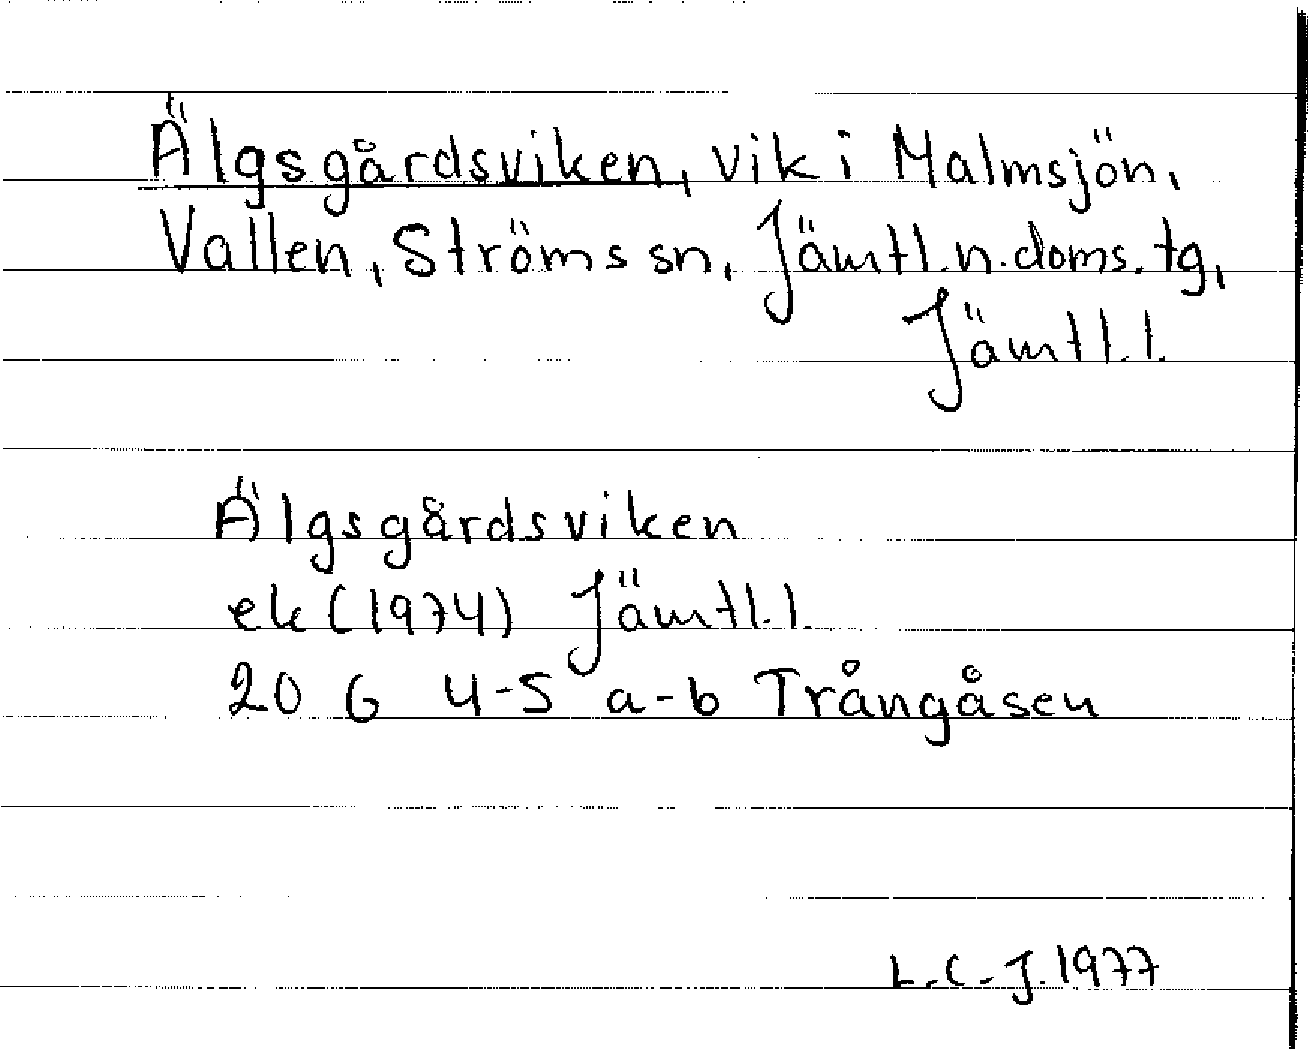 Älgsgårdsviken, vik i Malmsjön,
Vallen, Ströms sn, Jämtl. n. doms. tg,
Jämtl. l.
Älgsgårdsviken
ek (1974) Jämtl. l.
20 G 4-5 a-b Trångåsen
L.C-J. 1977